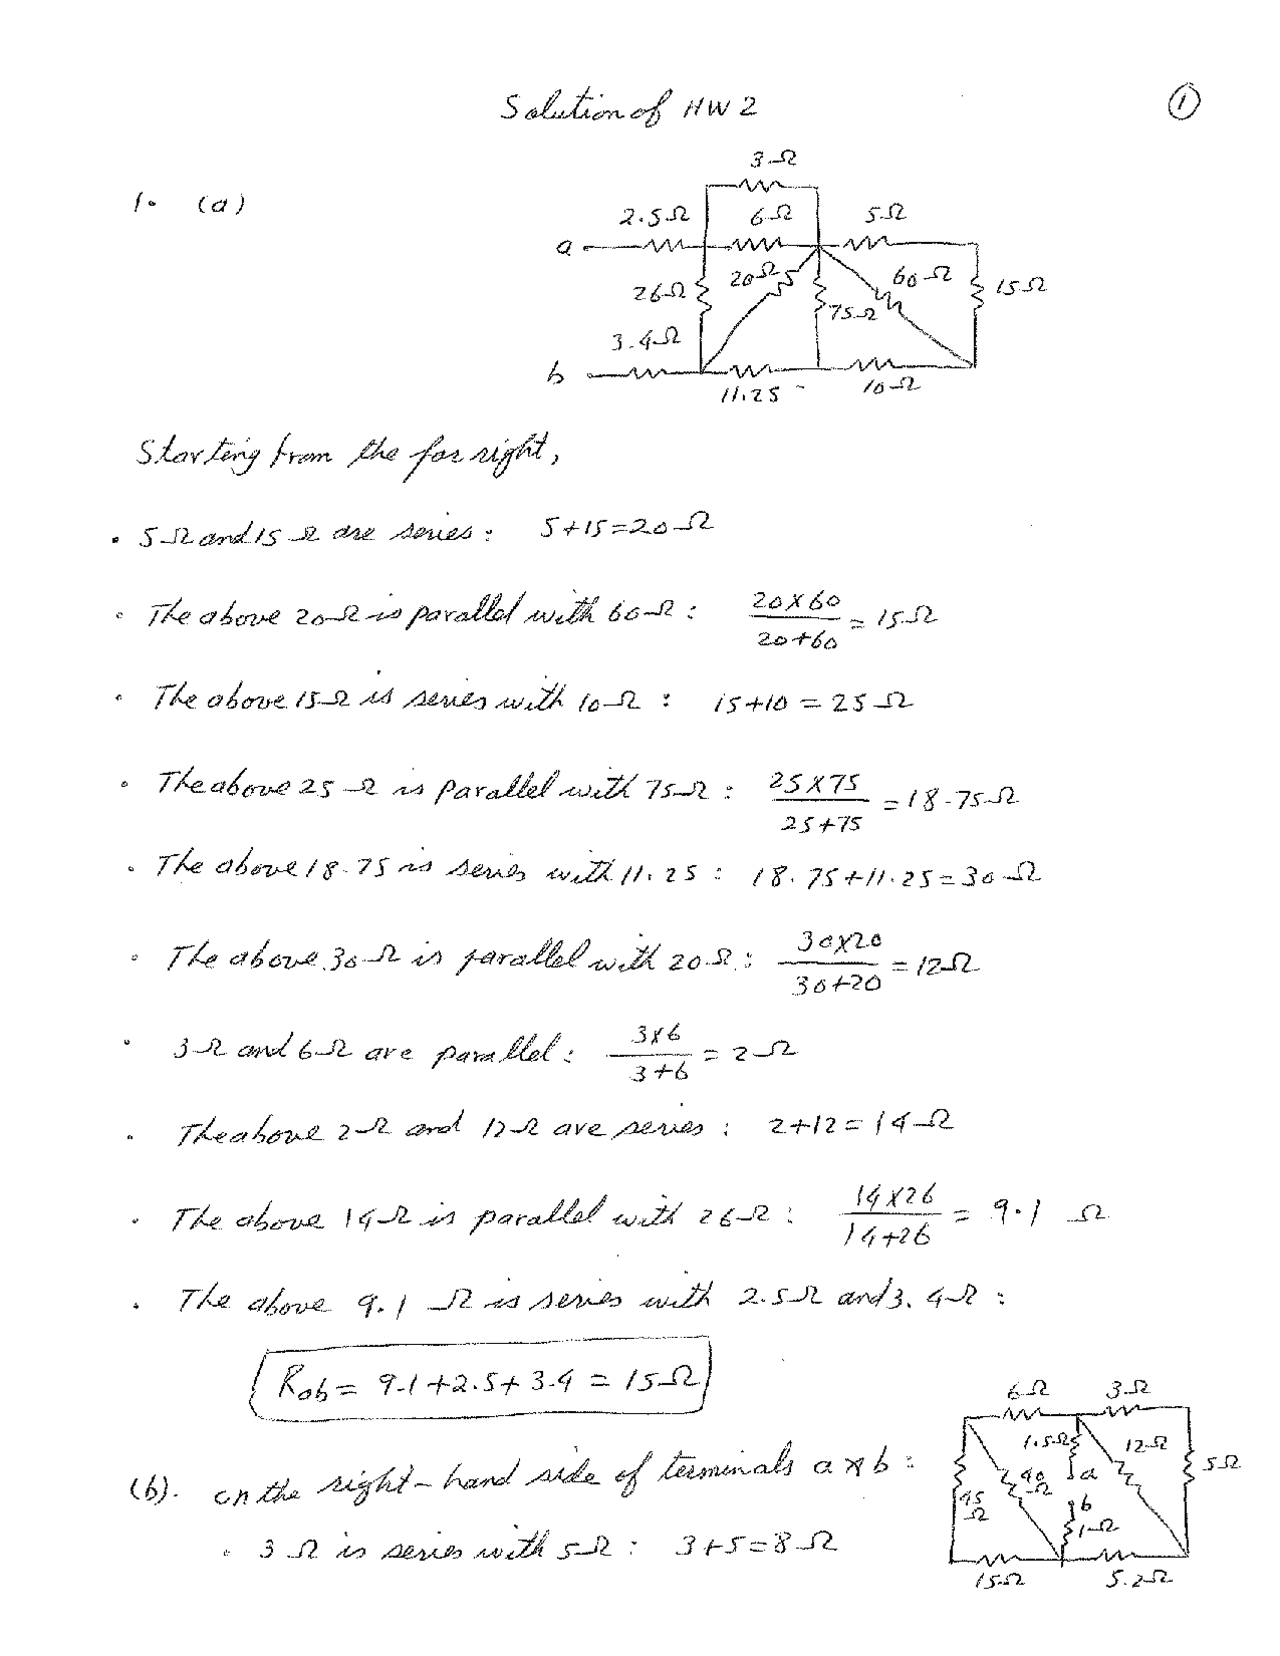 Solution of HW 2
1
1. (a)
3Ω
2.5Ω 6Ω 5Ω
a
26Ω 20Ω 60Ω 15Ω
75Ω
3.4Ω
b
11.25 10Ω
Starting from the far right,
• 5Ω and 15Ω are series: 5+15=20Ω
• The above 20Ω is parallel with 60Ω: 20×60/20+60 = 15Ω
• The above 15Ω is series with 10Ω: 15+10=25Ω
• The above 25Ω is parallel with 75Ω: 25×75/25+75 = 18.75Ω
• The above 18.75 is series with 11.25: 18.75+11.25=30Ω
• The above 30Ω is parallel with 20Ω: 30×20/30+20 = 12Ω
• 3Ω and 6Ω are parallel: 3×6/3+6 = 2Ω
• The above 2Ω and 12Ω are series: 2+12=14Ω
• The above 14Ω is parallel with 26Ω: 14×26/14+26 = 9.1 Ω
• The above 9.1 Ω is series with 2.5Ω and 3.4Ω:
Rab = 9.1+2.5+3.4 = 15Ω
6Ω 3Ω
1.5Ω 12Ω
40Ω a 5Ω
45Ω b
1Ω
15Ω 5.2Ω
(b). on the right-hand side of terminals a & b:
• 3Ω is series with 5Ω: 3+5=8Ω